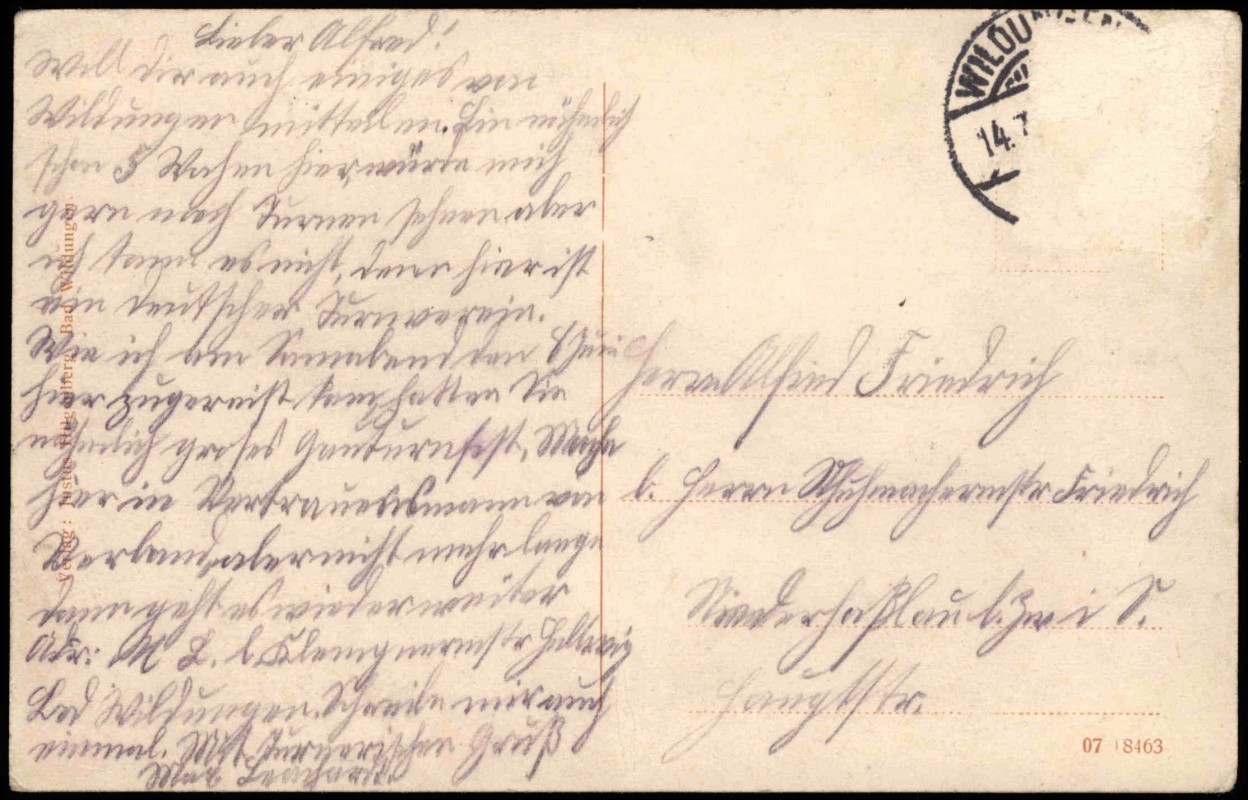 Lieber Alfred!
Will dir auch einiges von
Wildungen mitteilen. Bin nähmlich
schon 5 Wochen hier, würde mich
gern nach Turnen sehnen aber
ich kann es nicht, denn hier ist
ein deutscher Turnverein.
Wie ich am Sonnabend den Juni
hier zugereist kam, hatten Sie
nähmlich groses Gauturnfest. Mache
hier in Vertrauensmann von
Verband, aber nicht mehr lange
dann geht es wieder weiter
Adr: M L. b. Klempnermstr Hellwig
Bad Wildungen. Schreibe mir auch
einmal. Mit Turnerischen Gruß
Max
Verlag: Justus Hügelberg, Bad Wildungen.
WILDUNGEN
14.7
Herrn Alfred Friedrich
b. Herrn Schuhmachermstr Friedrich
Niederhaßlau b. Zw i S.
Hauptstr.
07 8463